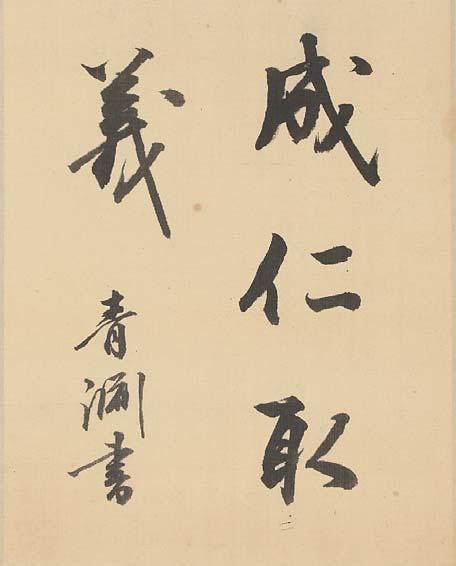 成仁取
義
青淵書